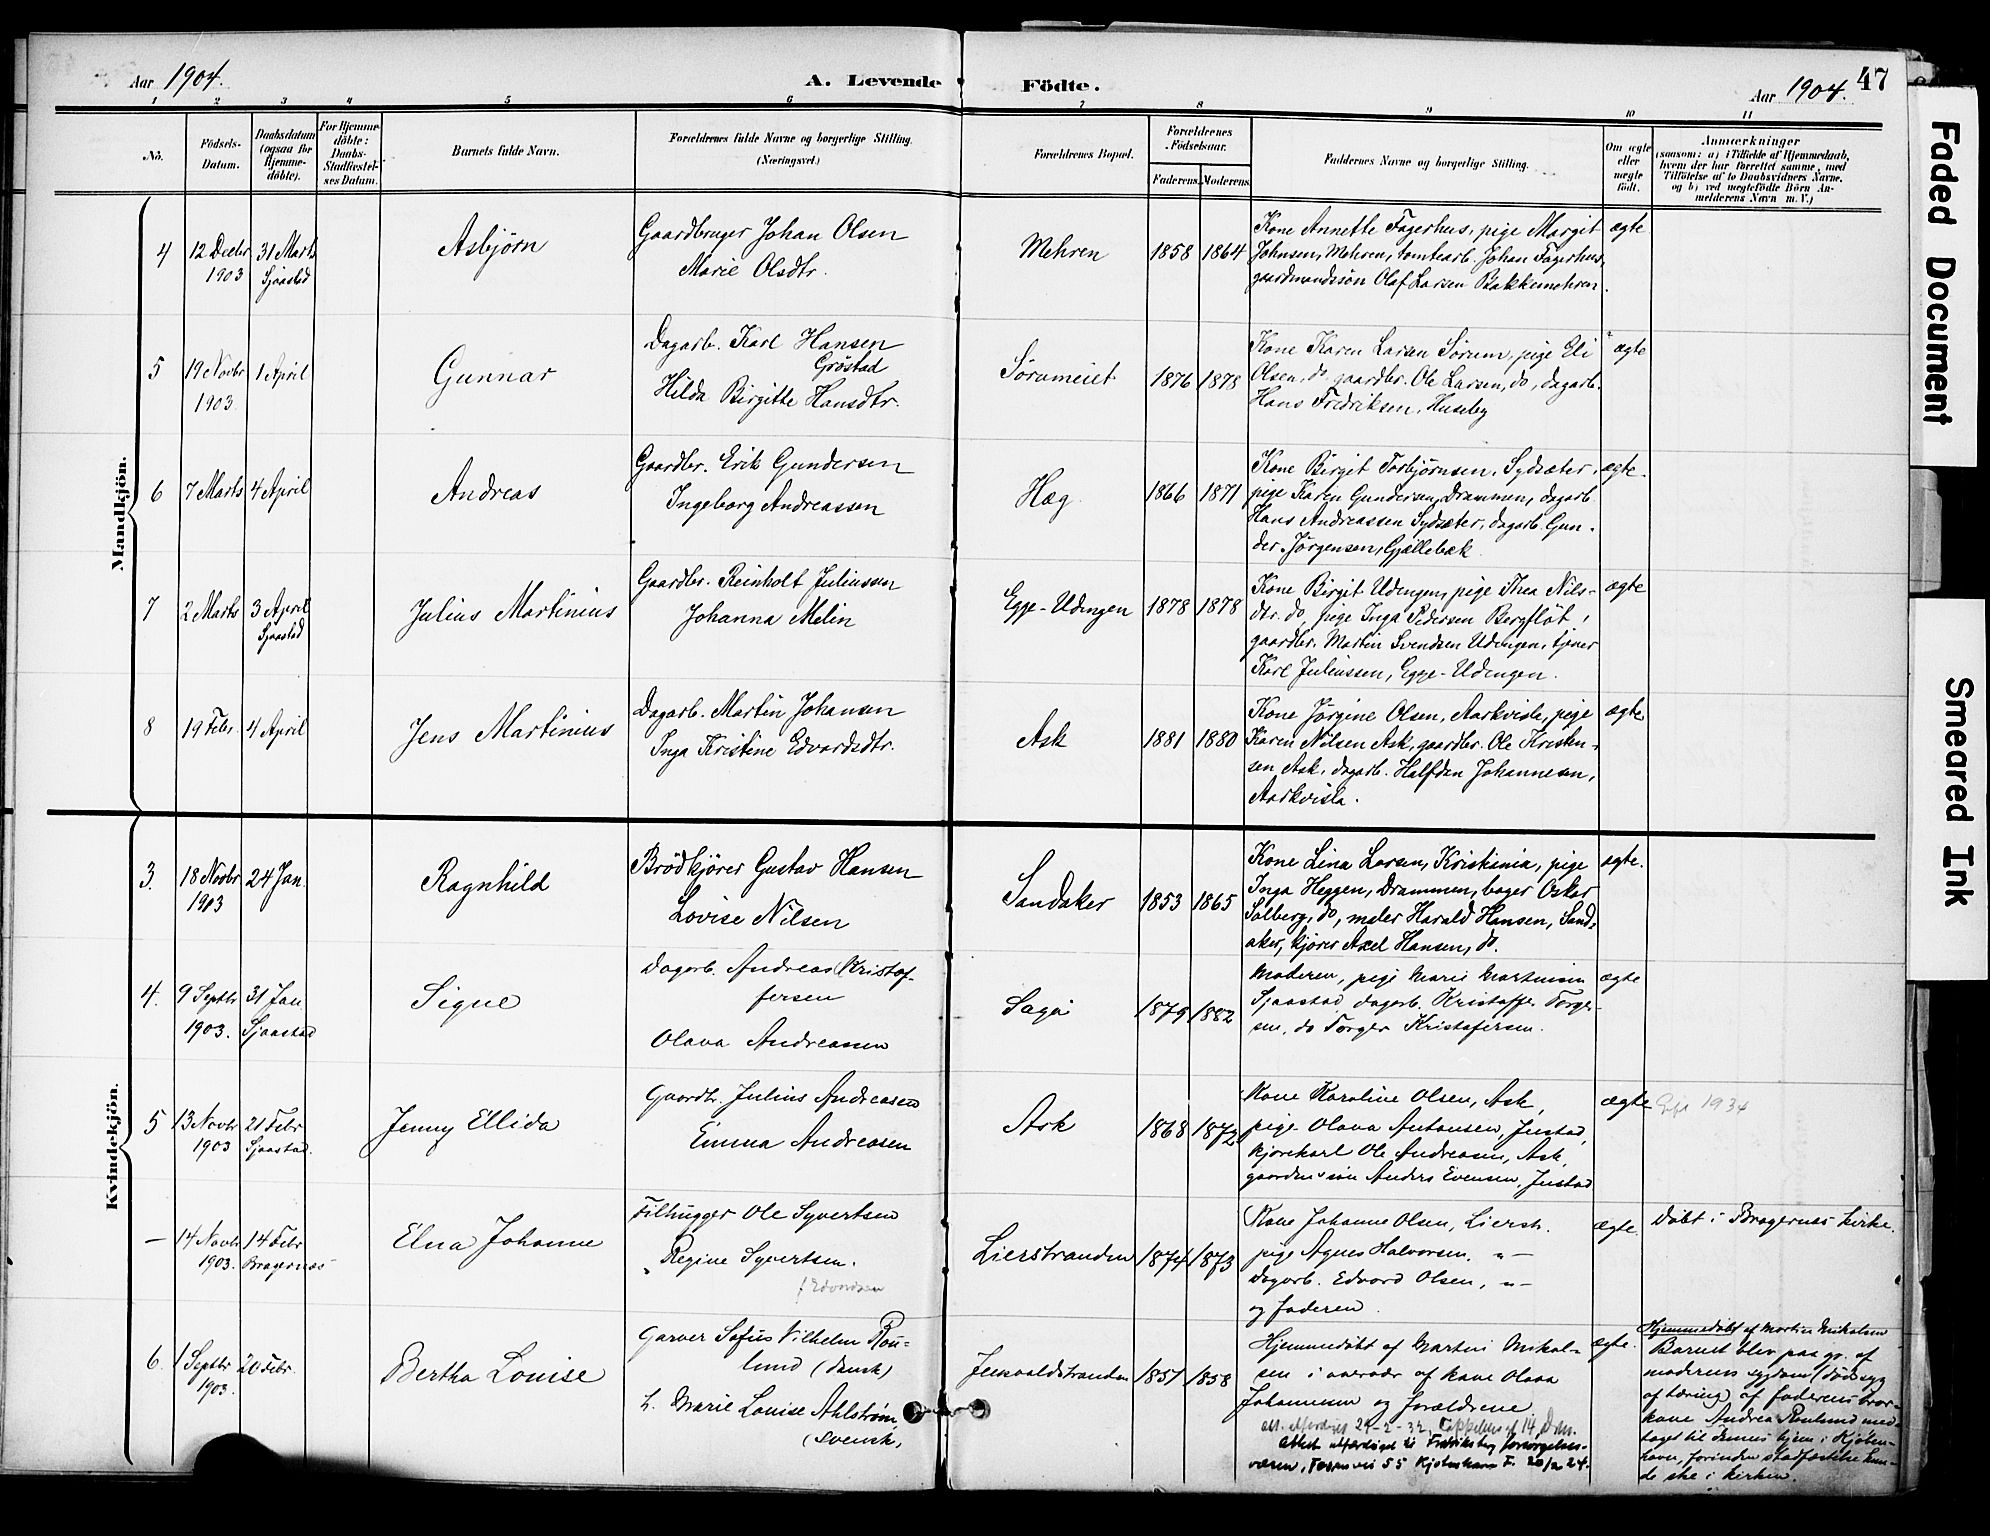 Aar 1904.
A. Levende Födte.
Aar 1904. 47
1 2 3 4 5 6 7 8 9 10 11
No.
Födsels-
Datum.
Daabsdatum
(ogsaa for
Hjemme-
döbte).
For Hjemme-
döbte:
Daabs-
Stadfæstel-
ses Datum.
Barnets fulde Navn.
Forældrenes fulde Navne og borgerlige Stilling.
(Næringsvei.)
Forældrenes Bopæl.
Forældrenes
Födselsaar.
Faderens. Moderens.
Faddernes Navne og borgerlige Stilling.
Om ægte
eller
uægte
födt.
Anmærkninger
(saasom: a) i Tilfælde af Hjemmedaab,
hvem der har forrettet samme, med
Tilföielse af to Daabsvidners Navne,
og b) ved uægtefödte Börn An-
melderens Navn m. V.)
Mandkjön.
4
12 Decbr
1903
31 Marts
Sjaastad
Asbjørn
Gaardbruger Johan Olsen
Marie Olsdtr.
Mehren
1858 1864
Kone Annette Fagerhus, pige Margit
Johnsen, Mehren, tomtearb. Johan Fagerhus,
gaardmandssøn Olaf Larsen Bakkemehren.
ægte
5
19 Novbr
1903
1 April
Gunnar
Dagarb. Karl Hansen
Grøstad
Hilda Birgitte Hansdtr.
Sørumeiet
1876 1878
Kone Karen Larsen Sørum, pige Eli
Olsen, do, gaardbr. Ole Larsen, do, dagarb.
Hans Fredriksen, Huseby
ægte
6
7 Marts
4 April
Andreas
Gaardbr. Erik Gundersen
Ingeborg Andreassen
Hæg
1866 1871
Kone Birgit Torbjørnsen, Sydsæter,
pige Karen Gundersen, Drammen, dagarb.
Hans Andreassen Sydsæter, dagarb. Gun-
der Jørgensen, Gjellebæk
ægte.
7
2 Marts
3 April
Sjaastad
Julius Martinius
Gaardbr. Reinholt Juliussen
Johanna Melin
Egge-Udengen
1878 1878
Kone Birgit Udengen, pige Thea Nils-
dtr. do, pige Inga Pedersen Bergfløt,
gaardbr. Martin Svendsen Udengen, tjener
Karl Juliussen, Egge-Udengen.
ægte
8
19 Febr.
4 April
Jens Martinius
Dagarb. Martin Johansen
Inga Kristine Edvardsdtr.
Ask
1881 1880
Kone Jørgine Olsen, Aarkvisla, pige
Karen Nilsen Ask, gaardbr. Ole Kristen-
sen Ask, dagarb. Halfdan Johannesen,
Aarkvisla.
ægte
Kvindekjön.
3.
18 Novbr
1903
24 Jan.
Ragnhild
Brödkjörer Gustav Hansen
Lovise Nilsen
Sandaker
1853 1865
Kone Lina Larsen, Kristiania, pige
Inga Heggen, Drammen, bager Oskar
Solberg, do, maler Harald Hansen, Sand-
aker, kjører Axel Hansen, do.
ægte.
4.
9 Septbr
1903.
31 Jan.
Sjaastad
Signe
Dagarb. Andreas Kristof-
fersen
Olava Andreassen
Saga
1879 1882
Moderen, pige Marie Martinsen
Sjaastad, dagarb. Kristoffer Torger-
sen, do Torger Kristofersen.
ægte
5
13 Novbr
1903
21 Febr
Sjaastad.
Jenny Ellida
Gaardbr. Julius Andreasen
Emma Andreasen
Ask
1868 1872
Kone Karoline Olsen, Ask,
pige Olava Antonsen, Justad,
kjørekarl Ole Andreasen, Ask,
gaardm.søn Anders Evensen, Justad
ægte
1934
—
14 Novbr
1903.
14 Febr
Bragernæs
Elna Johanne
Tilhugger Ole Syvertsen
Regine Syvertsen.
f Edvardsen
Lierstranden
1874 1873
Kone Johanne Olsen, Lierstr.
pige Agnes Halvorsen, –"–
Dagarb. Edvard Olsen, –"–
og faderen.
ægte.
Døbt i Bragernæs kirke.
6.
1 Septbr
1903.
20 Febr.
Bertha Louise
Garver Sofus Vilhelm Rou-
lund (dansk)
h. Marie Louise Ahlstrøm
(svensk)
Jensvoldstranden
1857 1858
Hjemmedøbt af Martin Mikal-
sen i nærvær af kone Olava
Johannesen og Forældrene
att. utferdiget 29-2-32, Cappelens gt 14, Dmn.
Attest utfærdiget til Fredriksberg forsorgelses-
væsen, 55 Kjøbenhavn F. 20/2 24.
ægte.
Hjemmedøbt af Martin Mikalsen
Barnet blev paa gr. af
moderens sygdom (dødssyg
af tæring) af faderens bror-
kone Andrea Roulund med-
taget til dennes hjem i Kjøben-
havn, forinden stadfæstelse kun-
de ske i kirken.
Faded Document
Smeared Ink